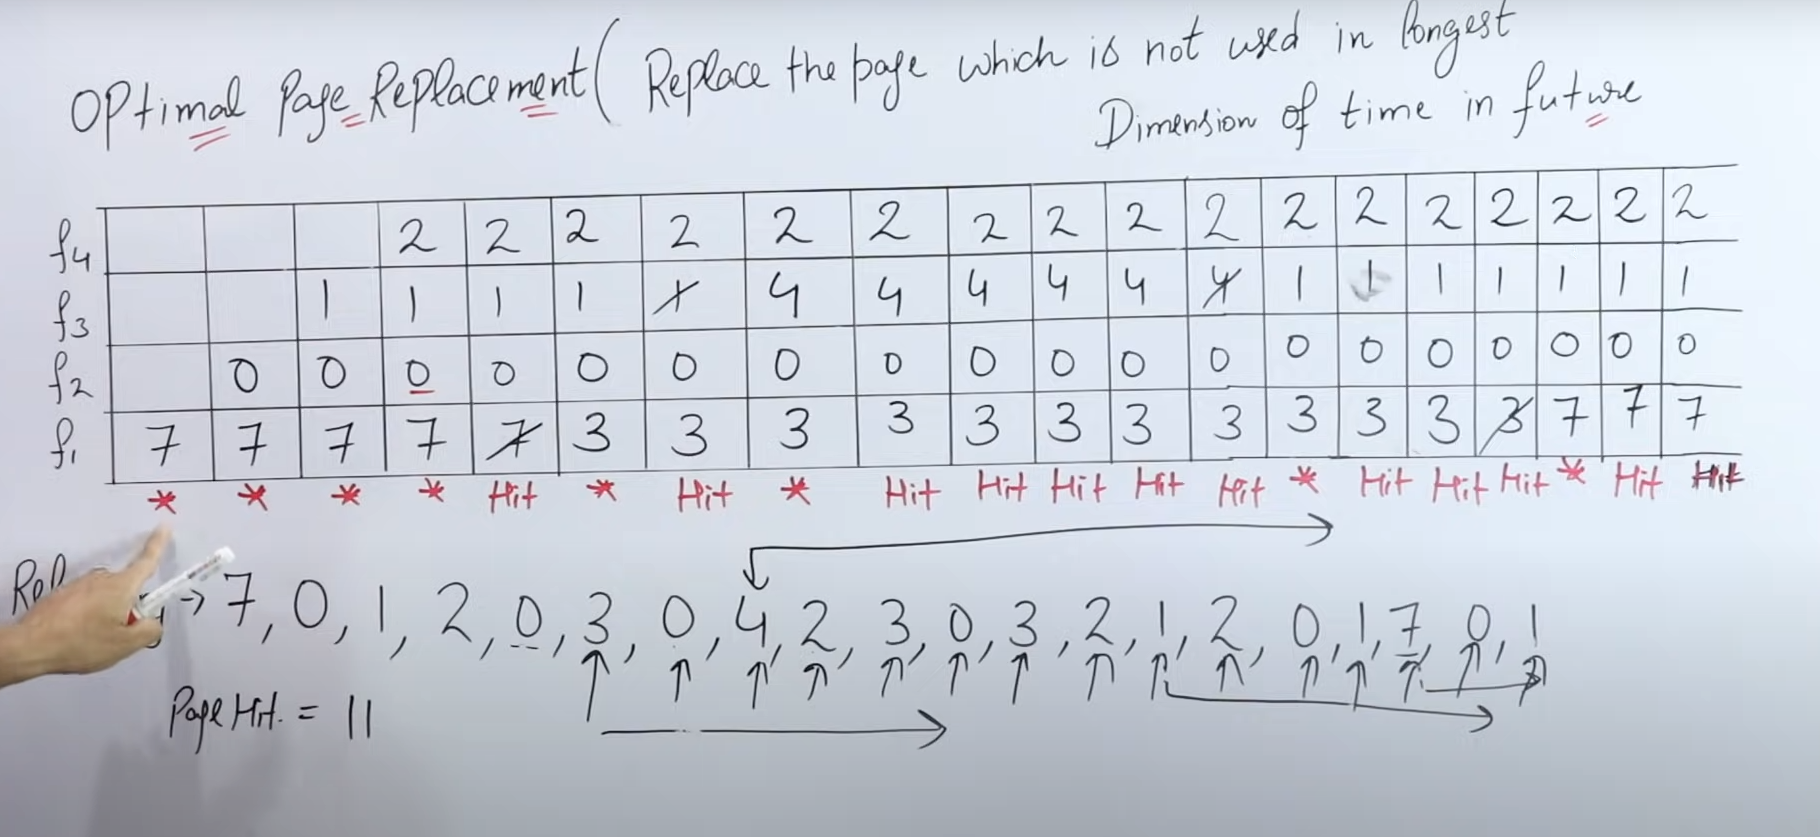 Optimal Page Replacement ( Replace the page which is not used in longest
Dimension of time in future
f4 2 2 2 2 2 2 2 2 2 2 2 2 2 2 2 2 2
f3 1 1 1 1 1 4 4 4 4 4 4 1 1 1 1 1 1 1
f2 0 0 0 0 0 0 0 0 0 0 0 0 0 0 0 0 0 0 0
f1 7 7 7 7 7 3 3 3 3 3 3 3 3 3 3 3 3 7 7 7
* * * * Hit * Hit * Hit Hit Hit Hit Hit * Hit Hit Hit * Hit Hit
→ 7, 0, 1, 2, 0, 3, 0, 4, 2, 3, 0, 3, 2, 1, 2, 0, 1, 7, 0, 1
Page Hit. = 11